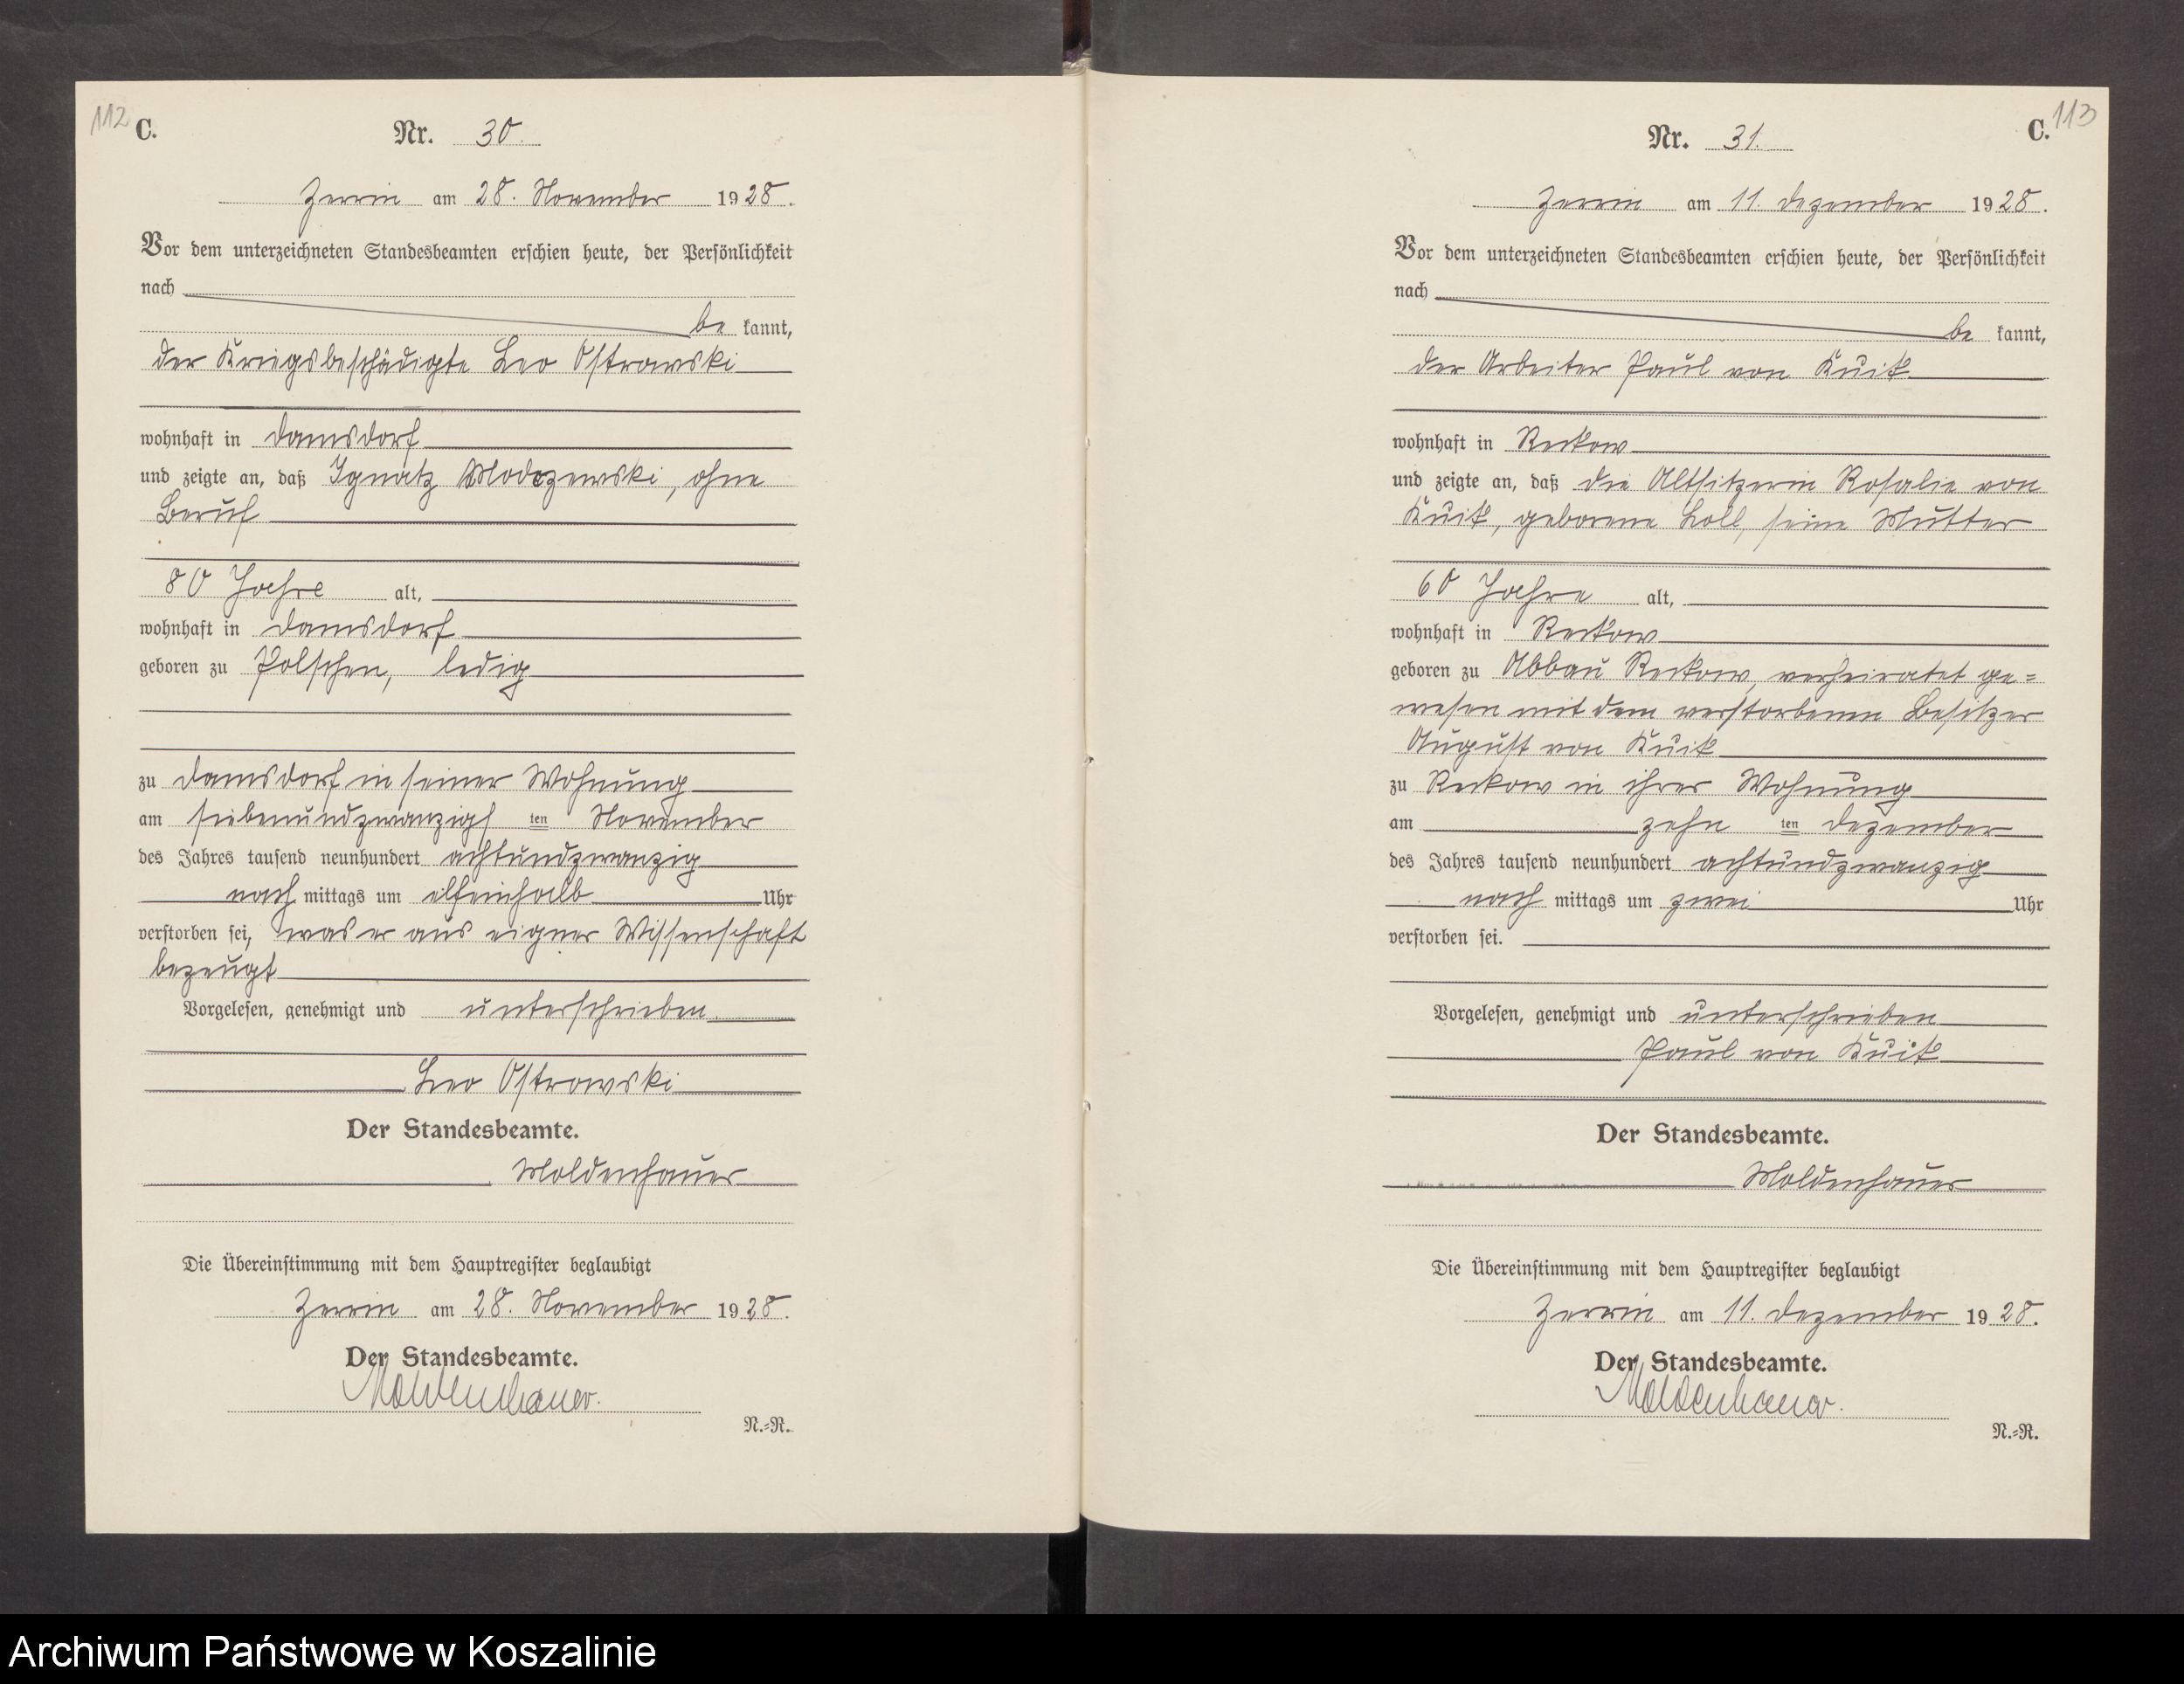 112
C.
Nr. 30.
Zerrin am 28. November 1928.
Vor dem unterzeichneten Standesbeamten erschien heute, der Persönlichkeit
nach
be kannt,
der Kriegsbeschädigte Leo Ostrowski
wohnhaft in Damsdorf
und zeigte an, daß Ignatz Modrzewski, ohne
Beruf
80 Jahre alt,
wohnhaft in Damsdorf
geboren zu Polschen, ledig
zu Damsdorf in seiner Wohnung
am siebenundzwanzigs ten November
des Jahres tausend neunhundert achtundzwanzig
nach mittags um elfeinhalb Uhr
verstorben sei, was er aus eigner Wissenschaft
bezeugt
Vorgelesen, genehmigt und unterschrieben
Leo Ostrowski
Der Standesbeamte.
Moldenhauer
Die Übereinstimmung mit dem Hauptregister beglaubigt
Zerrin am 28. November 1928.
Der Standesbeamte.
Moldenhauer.
N.=R.
113
C.
Nr. 31.
Zerrin am 11. Dezember 1928.
Vor dem unterzeichneten Standesbeamten erschien heute, der Persönlichkeit
nach
be kannt,
der Arbeiter Paul von Kuik
wohnhaft in Reckow
und zeigte an, daß die Altsitzerin Rosalie von
Kuik, geborene Loll, seine Mutter
60 Jahre alt,
wohnhaft in Reckow
geboren zu Abbau Reckow, verheiratet ge=
wesen mit dem verstorbenen Besitzer
August von Kuik
zu Reckow in ihrer Wohnung
am zehn ten Dezember
des Jahres tausend neunhundert achtundzwanzig
nach mittags um zwei Uhr
verstorben sei.
Vorgelesen, genehmigt und unterschrieben
Paul von Kuik
Der Standesbeamte.
Moldenhauer
Die Übereinstimmung mit dem Hauptregister beglaubigt
Zerrin am 11. Dezember 1928.
Der Standesbeamte.
Moldenhauer.
N.=R.
Archiwum Państwowe w Koszalinie